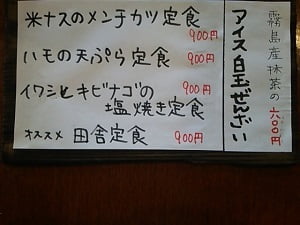 米ナスのメンチカツ定食
900円
ハモの天ぷら定食 900円
イワシとキビナゴの 900円
塩焼き定食
オススメ 田舎定食 900円
霧島産抹茶の 六〇〇円
アイス白玉ぜんざい